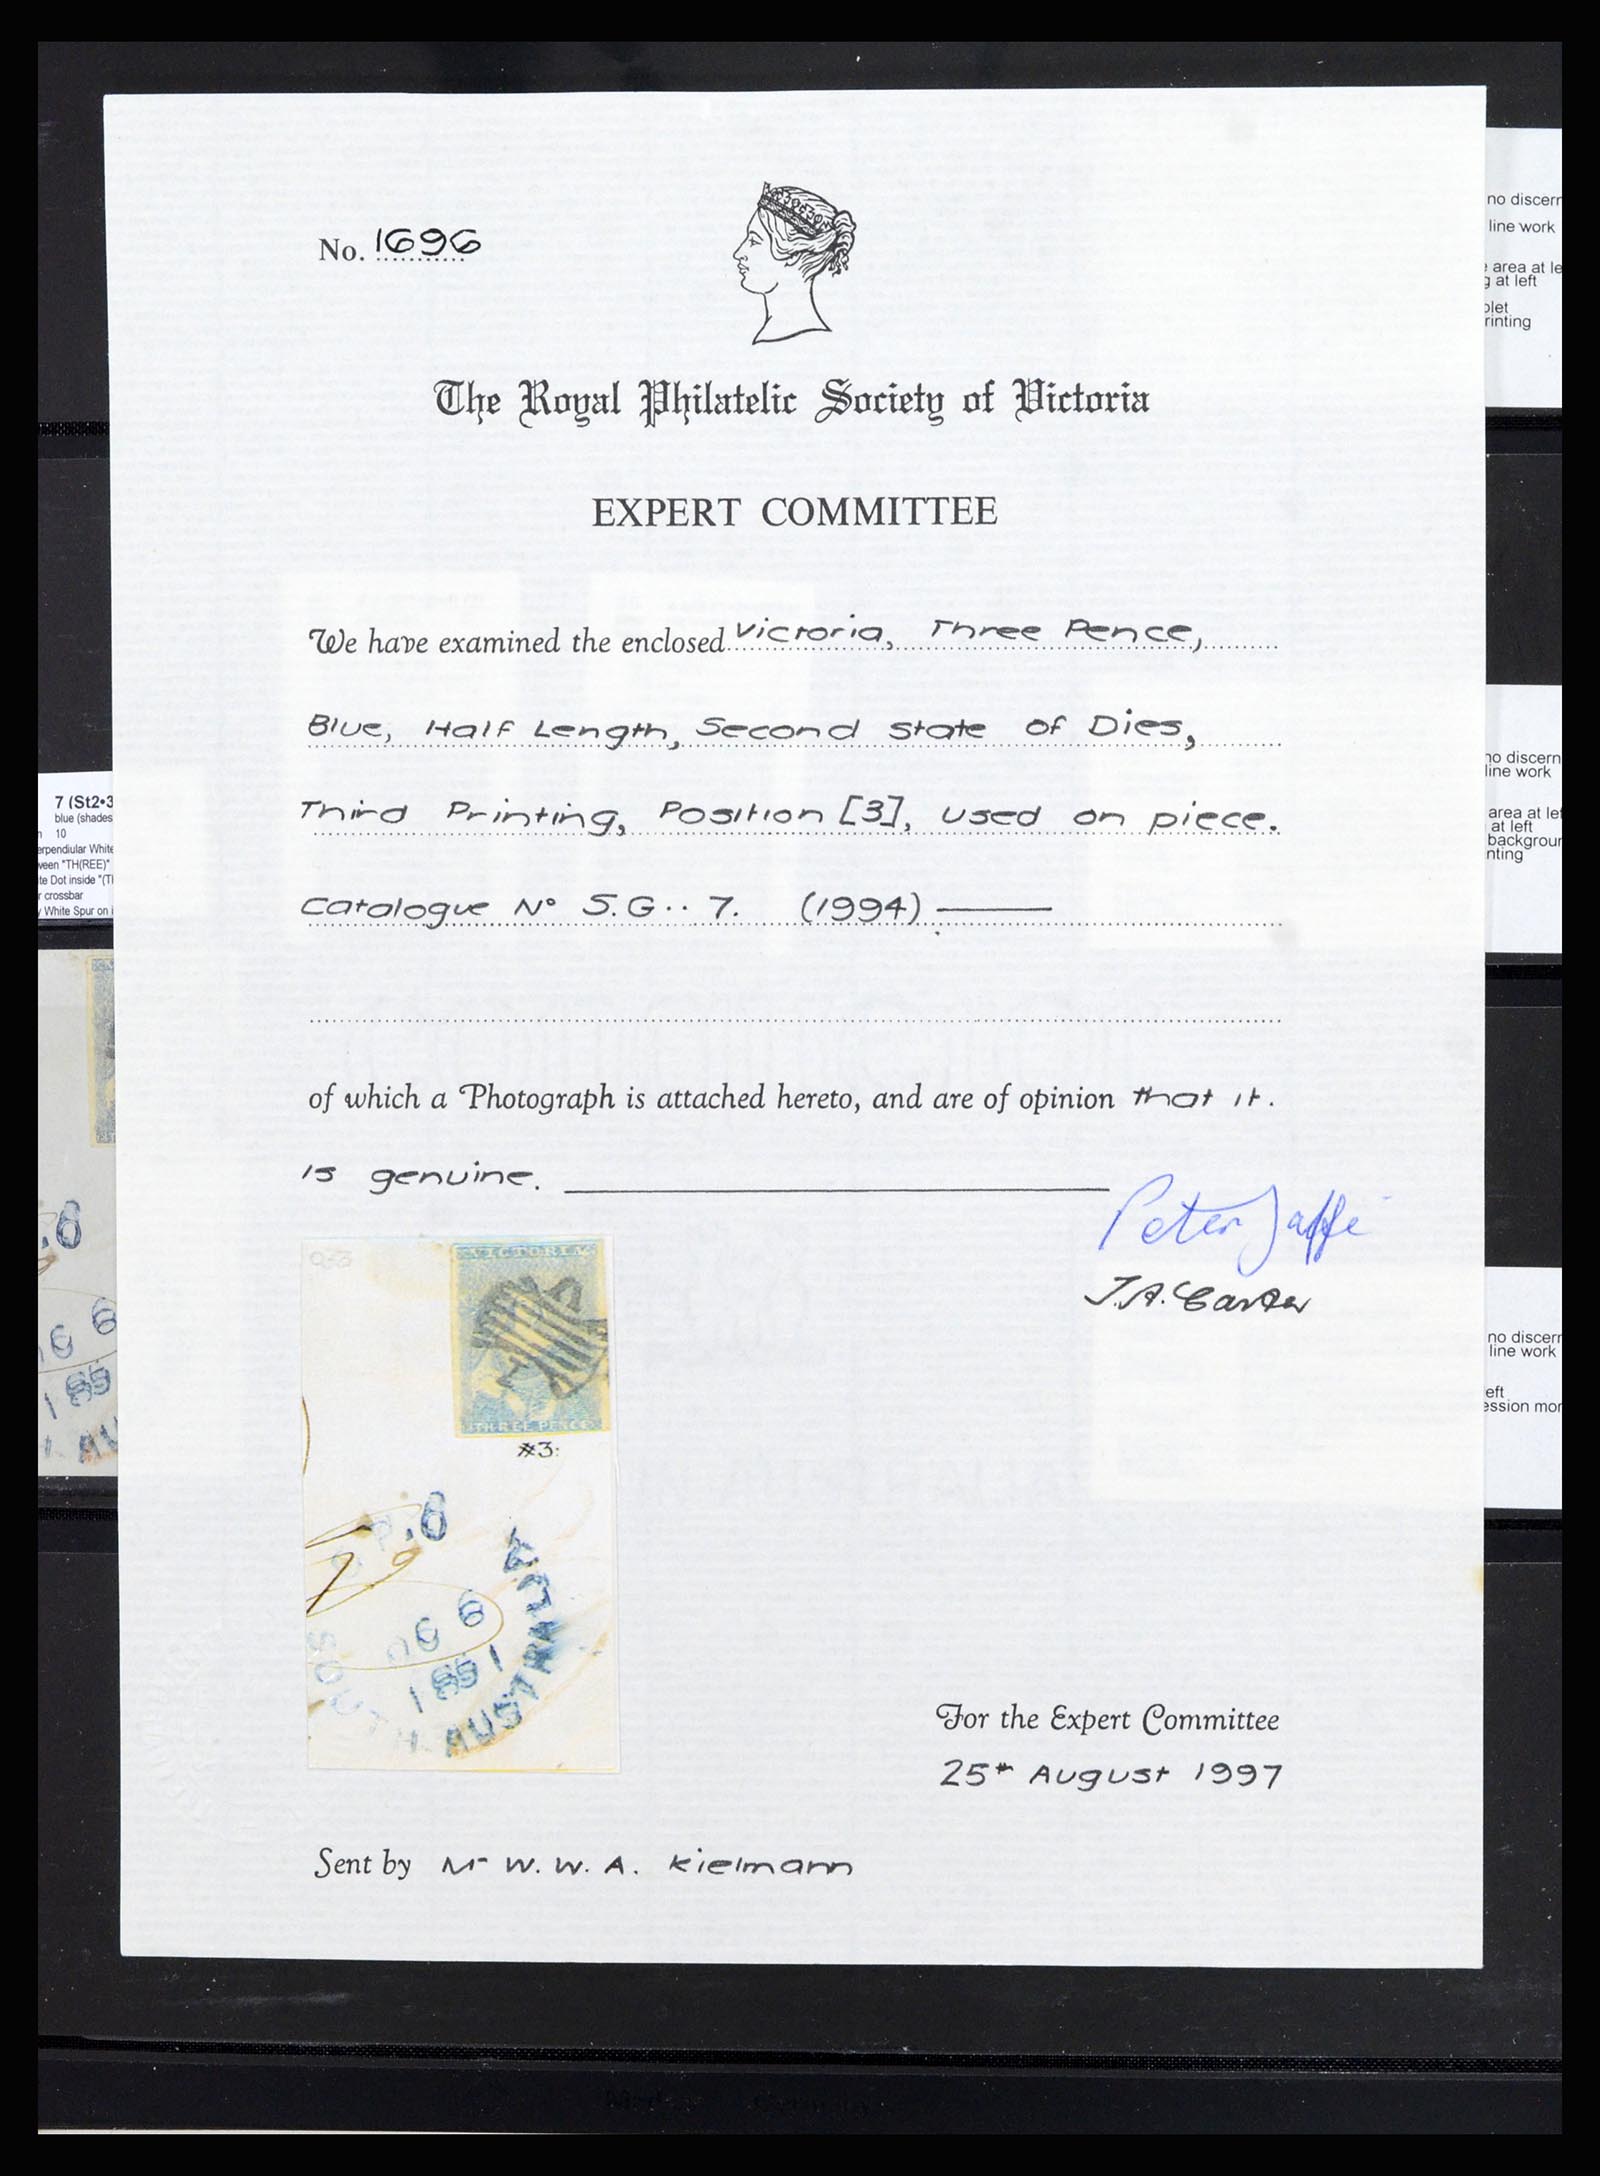 No. 1696
The Royal Philatelic Society of Victoria
EXPERT COMMITTEE
We have examined the enclosed Victoria, Three Pence,
Blue, Half Length, Second State of Dies,
Third Printing, Position [3], used on piece.
Catalogue No S.G.. 7. (1994)
of which a Photograph is attached hereto, and are of opinion that it.
is genuine.
Peter Jaffé
J.A. Carter
VICTORIA
THREE PENCE
#3:
1851
SOUTH AUSTRALIA
For the Expert Committee
25th August 1997
Sent by Mr W. W. A. Kielmann
7 (St2•3
blue (shades
10
erpendiular White
ween "TH(REE)"
te Dot inside "(T
r crossbar
White Spur on i
AU
no discern
line work
area at le
g at left
olet
rinting
no discern
line work
area at lef
at left
backgroun
nting
no discern
line work
eft
ession mor